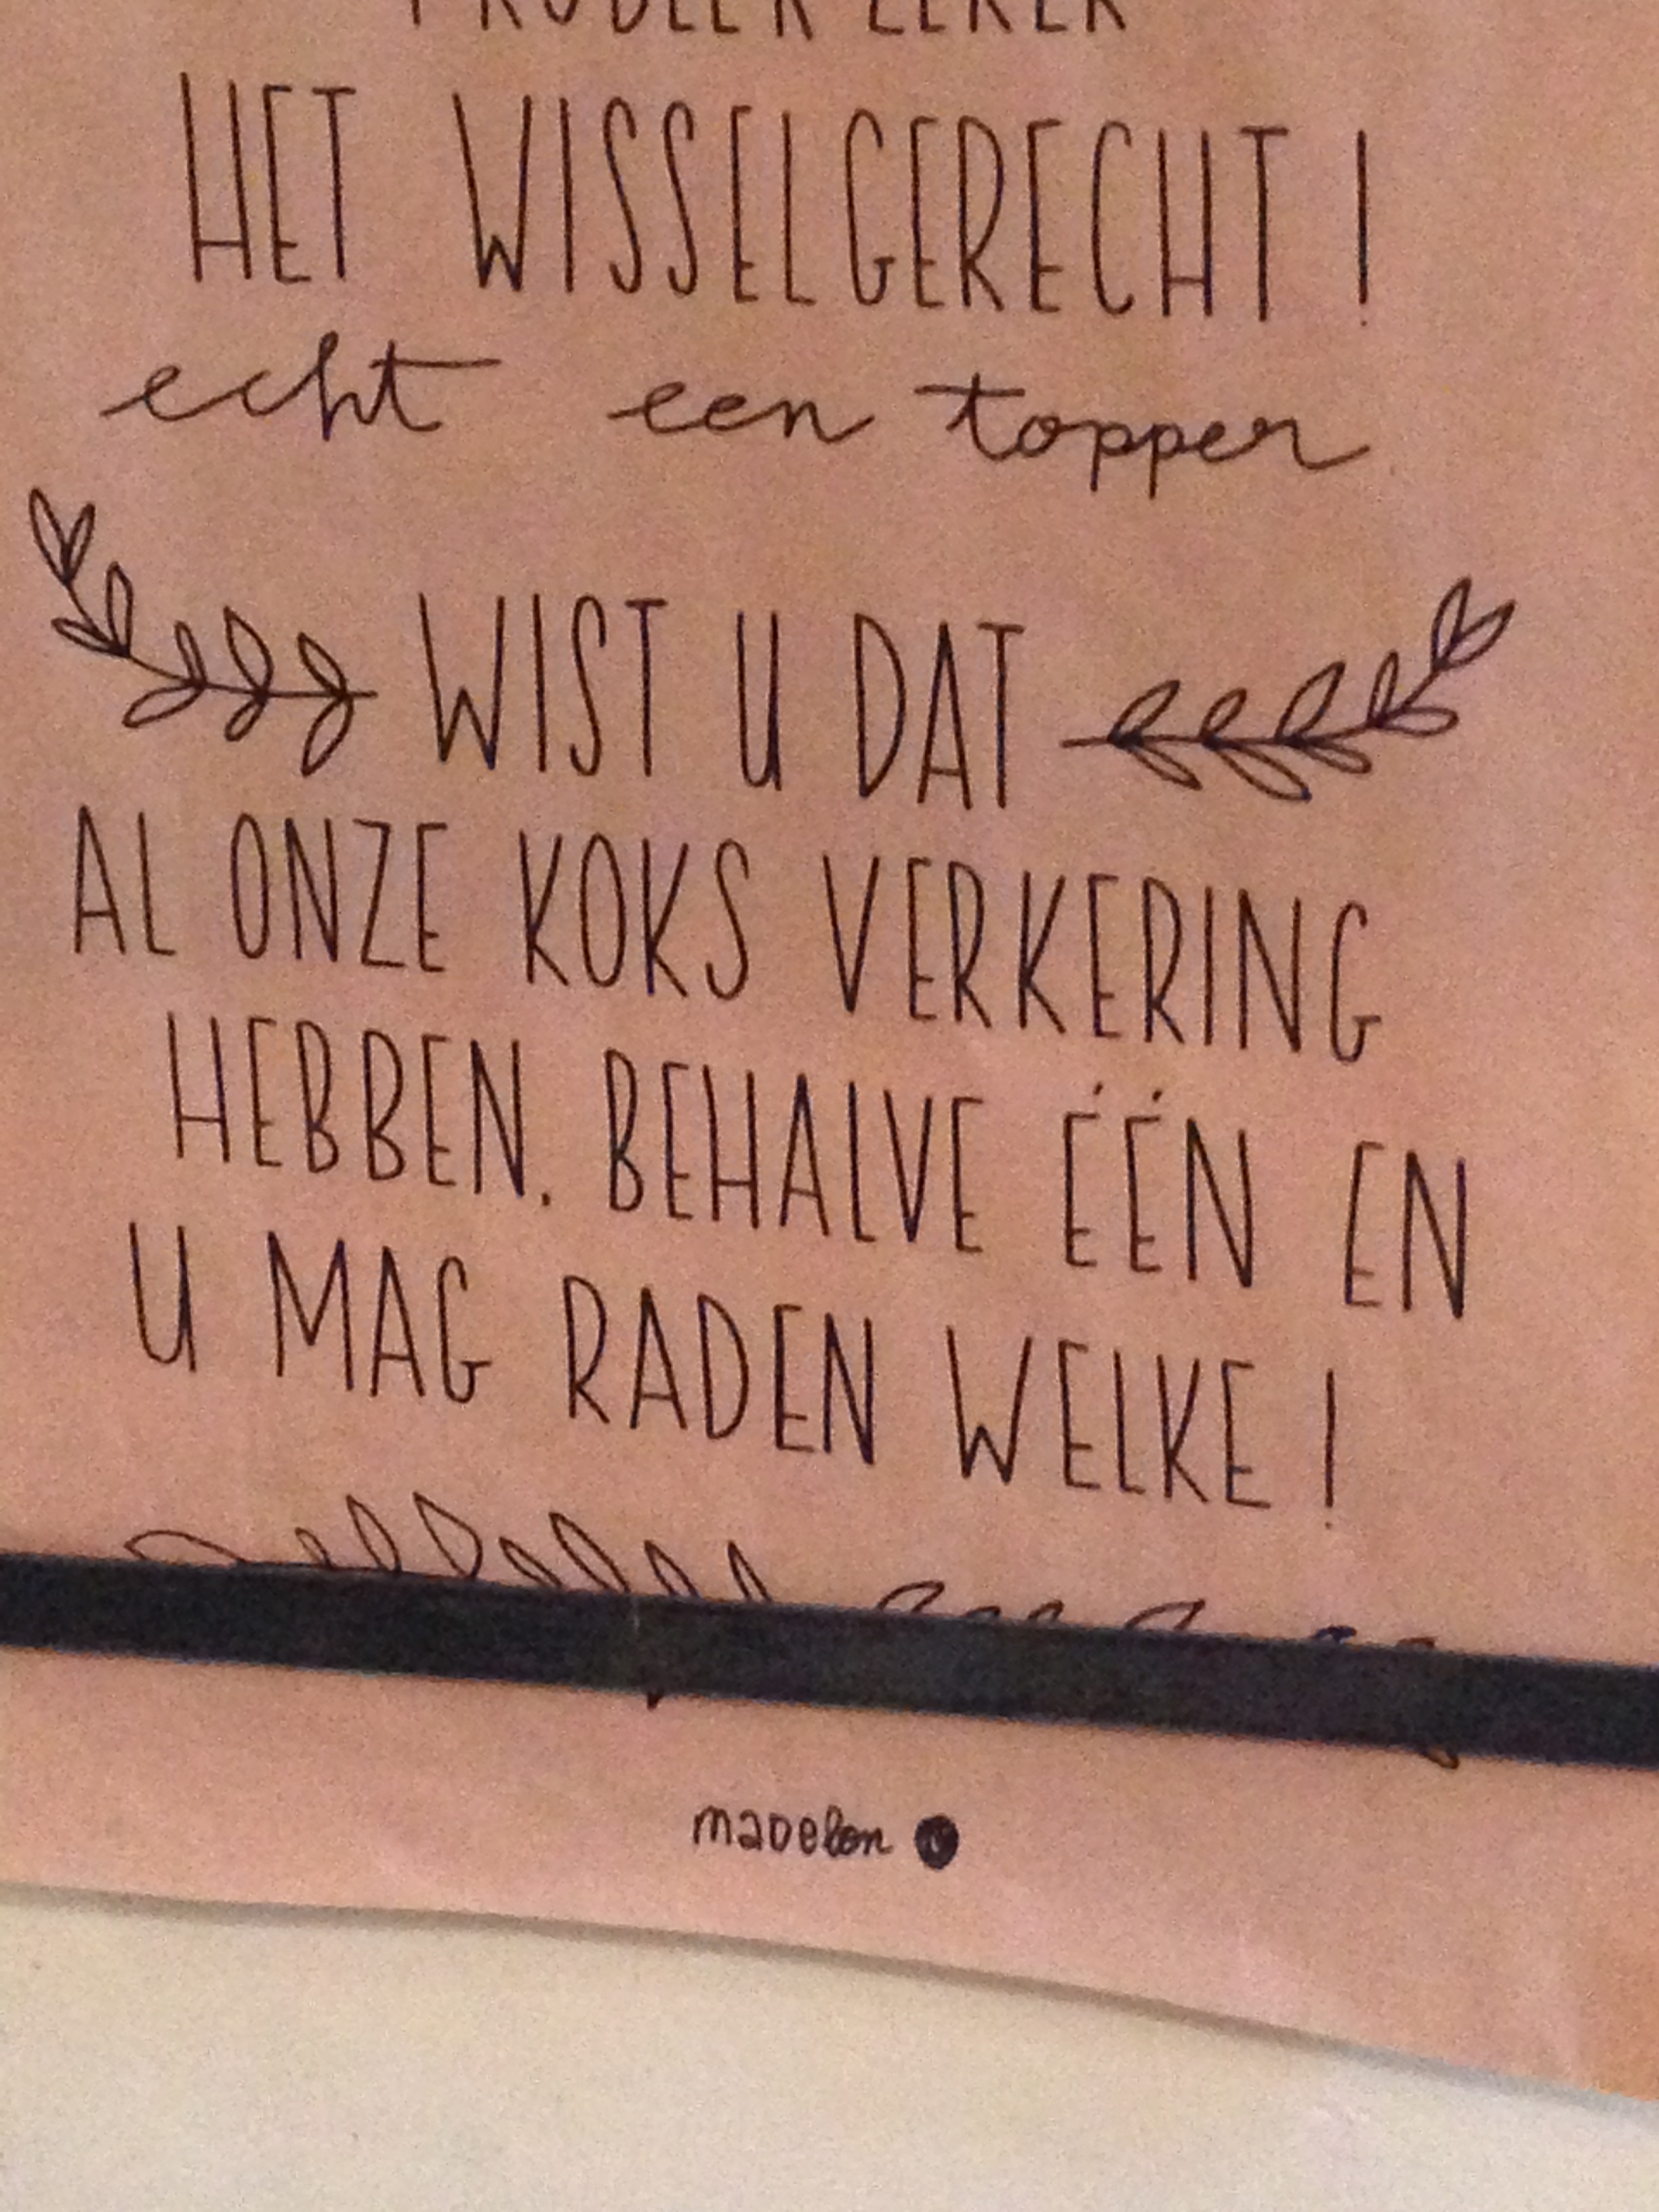 PROBEER ZEKER
HET WISSELGERECHT!
echt een topper
WIST U DAT
AL ONZE KOKS VERKERING
HEBBEN. BEHALVE ÉÉN EN
U MAG RADEN WELKE!
madelon